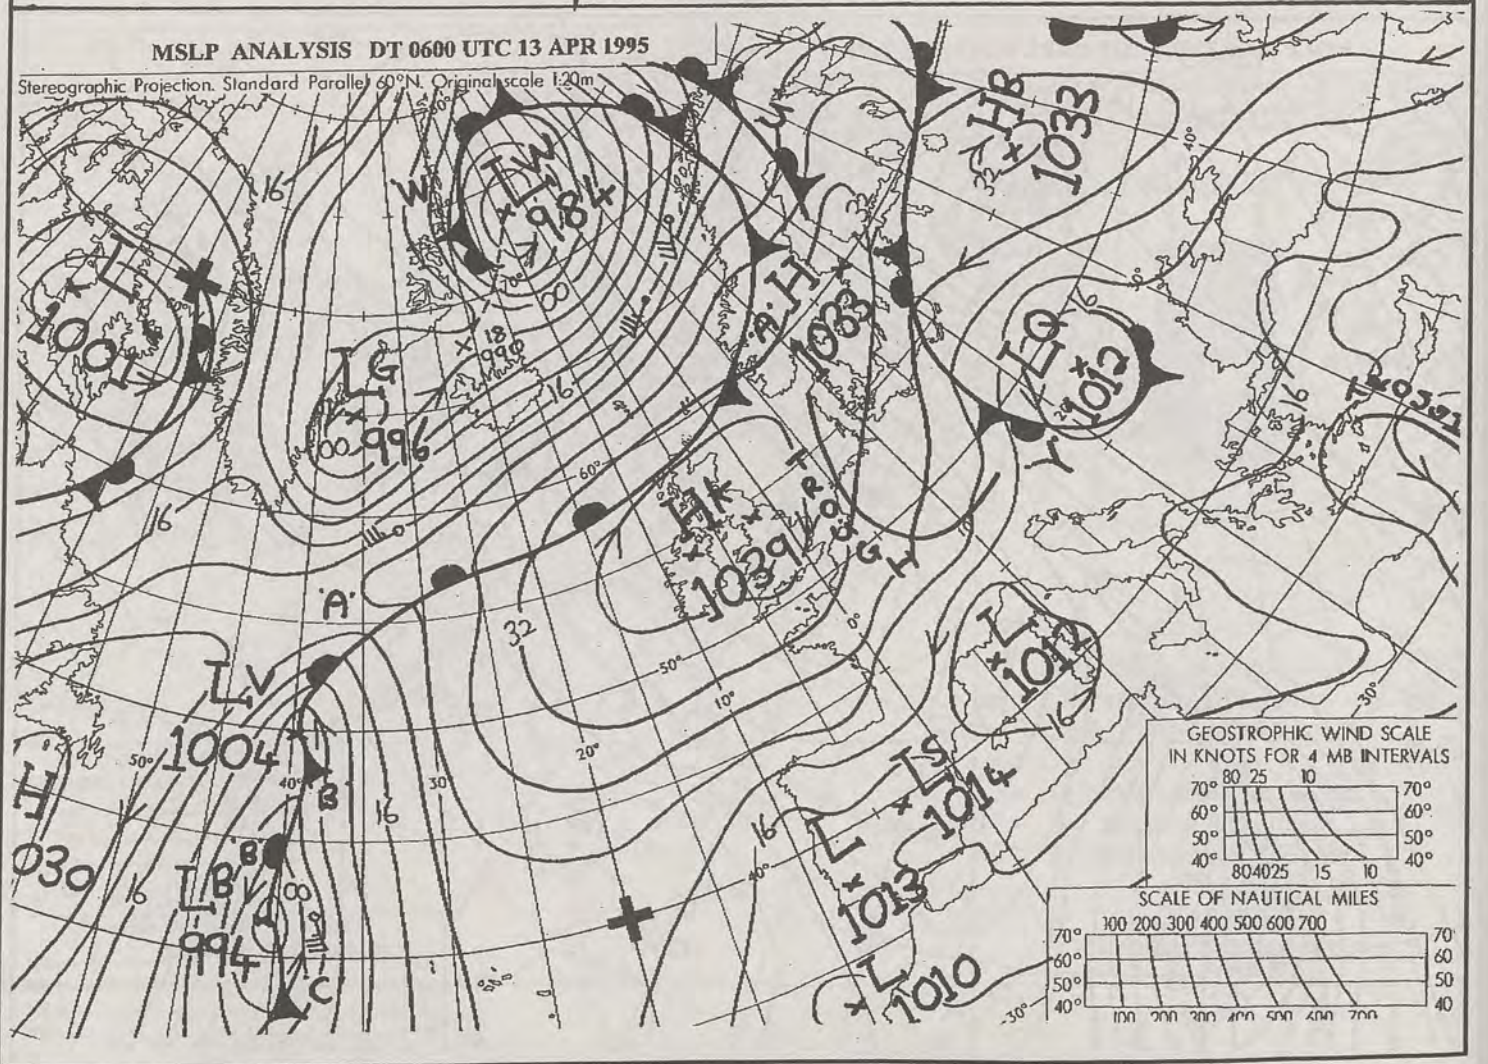 MSLP ANALYSIS DT 0600 UTC 13 APR 1995
Stereographic Projection. Standard Parallel 60°N. Original scale 1:20m
HB
1033
40°
LW
984
W
16
L
1001
00
70°
'A'
H
1033
LQ
1012
16
Y
LG
996
00
18
990
16
16
60°
HK
1039
TROUGH
16
'A'
32
50°
10°
0°
L
1012
16
30°
LV
1004
50°
40°
B
16
30
20°
H
030
16
'B'
LB
994
00
C
LS
1014
L
1013
16
40°
L
1010
30°
GEOSTROPHIC WIND SCALE
IN KNOTS FOR 4 MB INTERVALS
80 25 10
70° 70°
60° 60°
50° 50°
40° 40°
80 40 25 15 10
SCALE OF NAUTICAL MILES
100 200 300 400 500 600 700
70° 70
60° 60
50° 50
40° 40
100 200 300 400 500 600 700